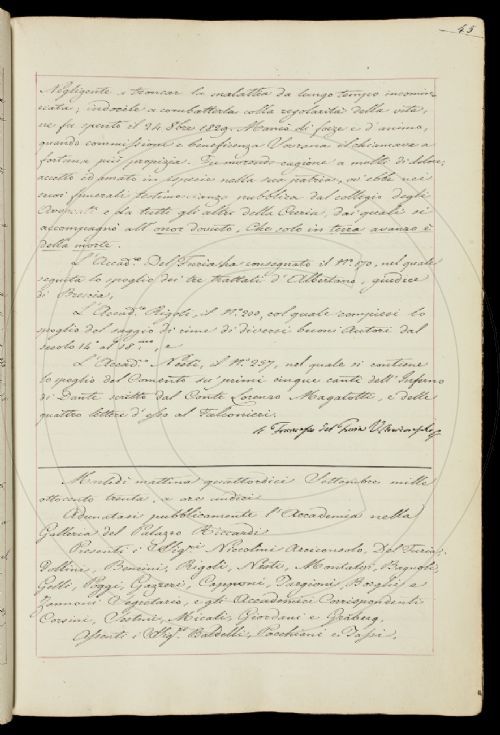 45
Negligente a troncar la malattia da lungo tempo incomin-
ciata; indocile a combatterla colla regolarità della vita,
ne fu spento il 24 8bre 1829. Mancò di forze e d'animo,
quando commissioni e beneficenza Sovrana il chiamava a
fortuna più propizia. Fu morendo cagione a molti di dolore;
accetto ed amato in specie nella sua patria, ov'ebbe nei
suoi funerali testimonianza pubblica dal collegio degli
Avvocati e da tutti gli altri della Curia, dai quali si
accompagnò all'onor dovuto, Che solo in terra avanzo è
della morte.
L'Accad.co Del Furia ha consegnato il N.o 170, nel quale
seguita lo spoglio dei tre trattati d'Albertano, giudice
di Brescia,
L'Accad.co Rigoli, il N.o 200, col quale compiessi lo
spoglio del saggio di rime di diversi buoni Autori dal
secolo 14.o al 18.mo, e
L'Accad.co Nesti, il N.o 257, nel quale si contiene
lo spoglio del Comento su' primi cinque canti dell'Inferno
di Dante scritto dal Conte Lorenzo Magalotti, e delle
quattro lettere d'esso al Falconieri.
Francesco del Furia
Martedì mattina quattordici Settembre mille
ottocento trenta, a ore undici
Adunatasi pubblicamente l'Accademia nella
Galleria del Palazzo Riccardi
Presenti i Sig.ri Niccolini Arciconsolo, Del Furia,
Follini, Bencini, Rigoli, Nesti, Montalvi, Bagnoli,
Gelli, Poggi, Gazzeri, Capponi, Targioni, Borghi e
Zannoni Segretario, e gli Accademici Corrispondenti
Corsini, Sestini, Micali, Giordani e Gråberg.
Assenti i Sig.ri Baldelli, Pacchiani e Tassi.